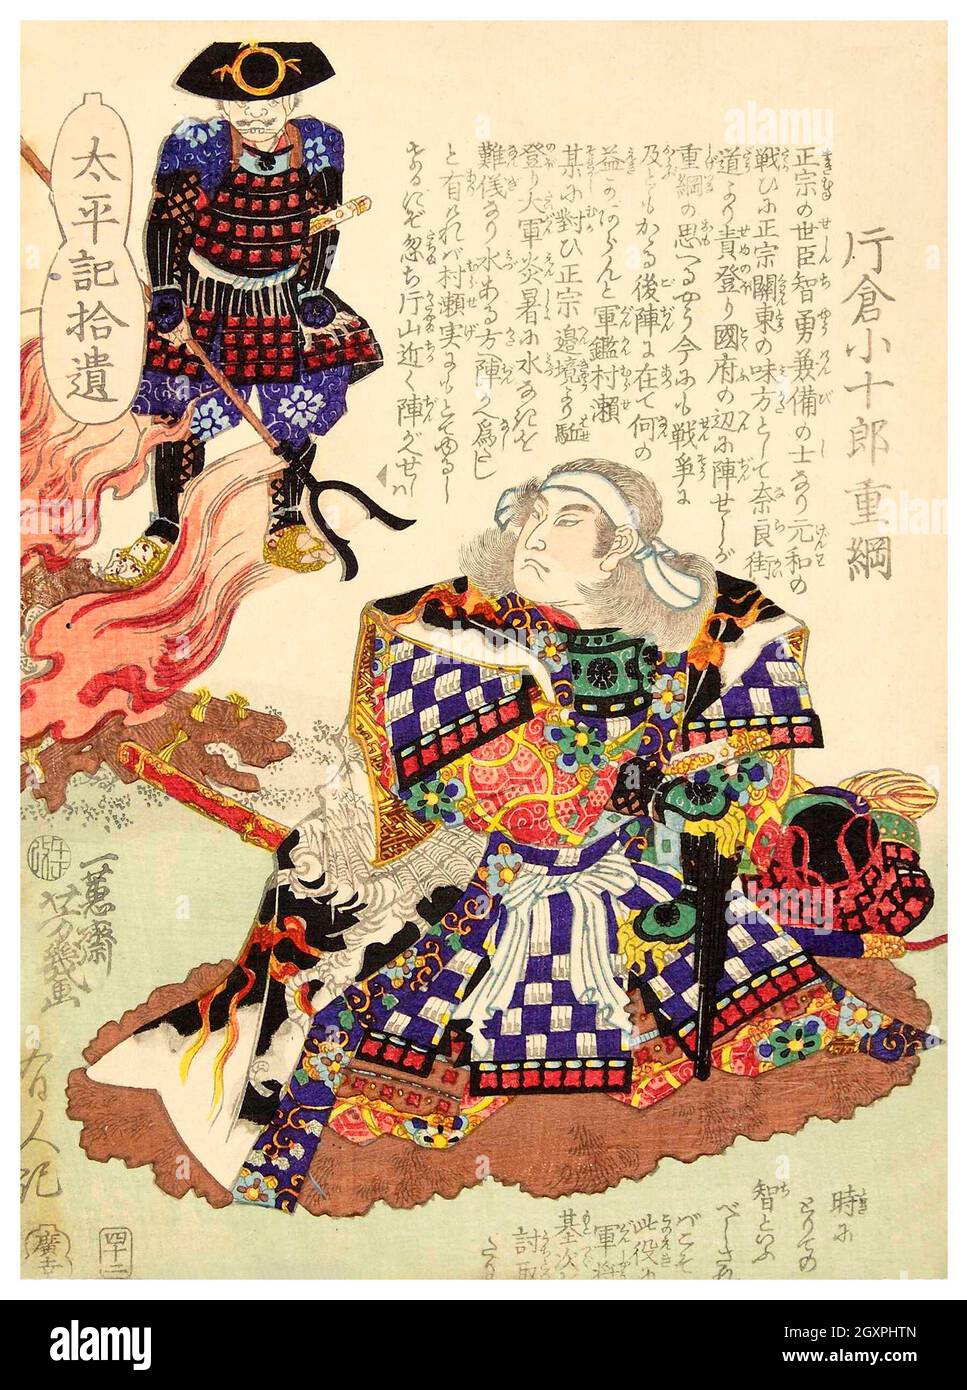 片倉小十郎重綱
正宗の世臣智勇兼備の士なり元和の
戦ひに正宗關東の味方として奈良街
道より責登り國府の辺に陣せしが
重綱の思へるやう今にも戦争に
及ともかゝる後陣に在て何の
益かあらんと軍鑑村瀬
某に對ひ正宗邊境より駈
登り大軍炎暑に水なきを
難儀なり水ある方へ陣べ為し
と有ければ村瀬実にもとゆるし
けるにぞ忽ち片山近く陣がせば
時に
とりての
智といふ
べしされ
ばこそ
此役に
軍将
基次
討取
太平記拾遺
一蕙齋
芳幾画
有人記
四十二
廣幸
alamy
Image ID: 2GXPHTN
www.alamy.com